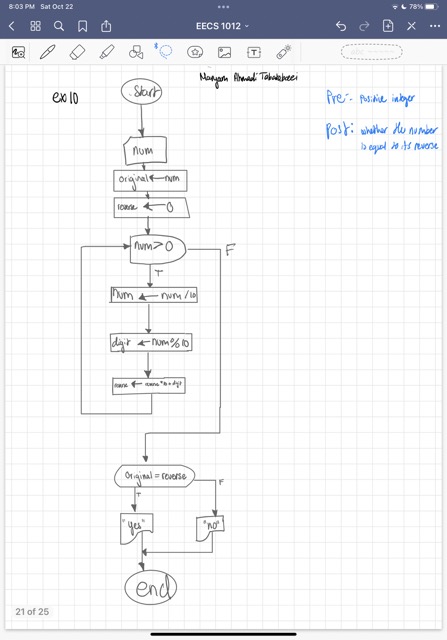 8:03 PM Sat Oct 22
78%
EECS 1012
ex10
Start
Pre - Positive integer
Post: whether the number
is equal to its reverse
num
original ← num
reverse ← 0
num > 0
F
T
num ← num / 10
digit ← num % 10
reverse ← reverse * 10 + digit
original = reverse
T
F
"yes"
"no"
end
21 of 25